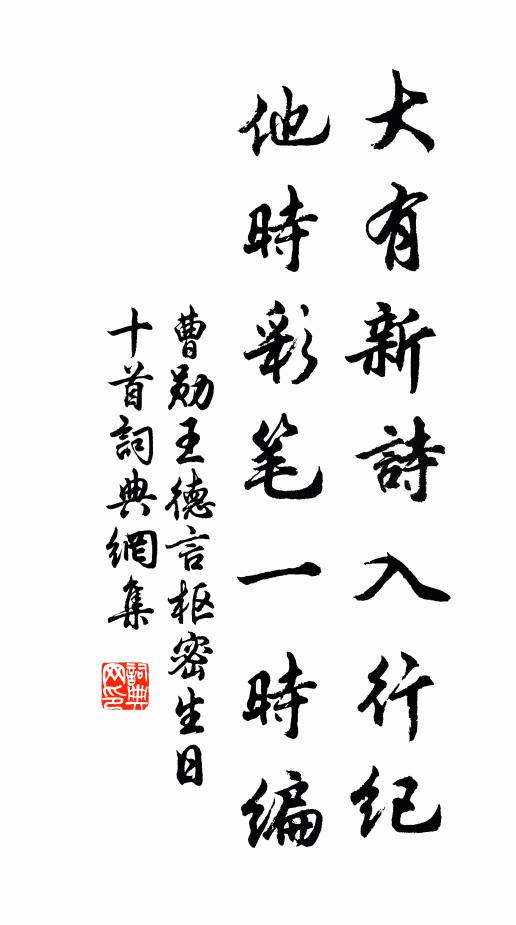 大有新詩入行纪
他時彩笔一時编
曹勋王德言枢密生日
十首詞典網集
詞典网印